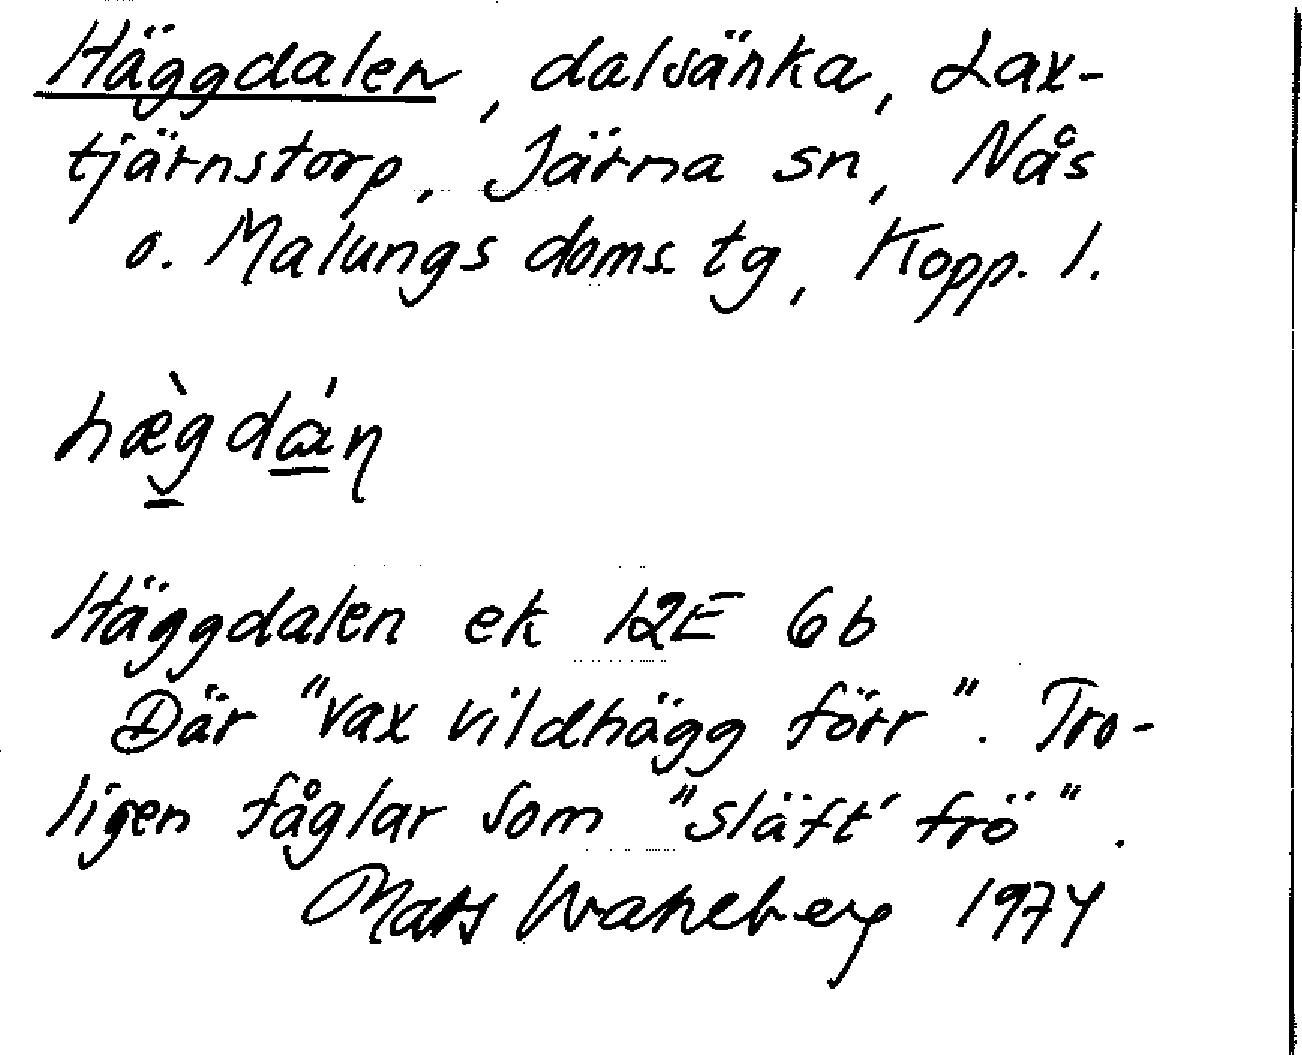 Häggdalen, dalsänka, Lax-
tjärnstorp, Järna sn, Nås
o. Malungs doms. tg, Kopp. l.
hæ̀gdán
Häggdalen ek 12E 6b
Där "vax vildhägg förr". Tro-
ligen fåglar som "släft' frö".
Mats Wahlberg 1974